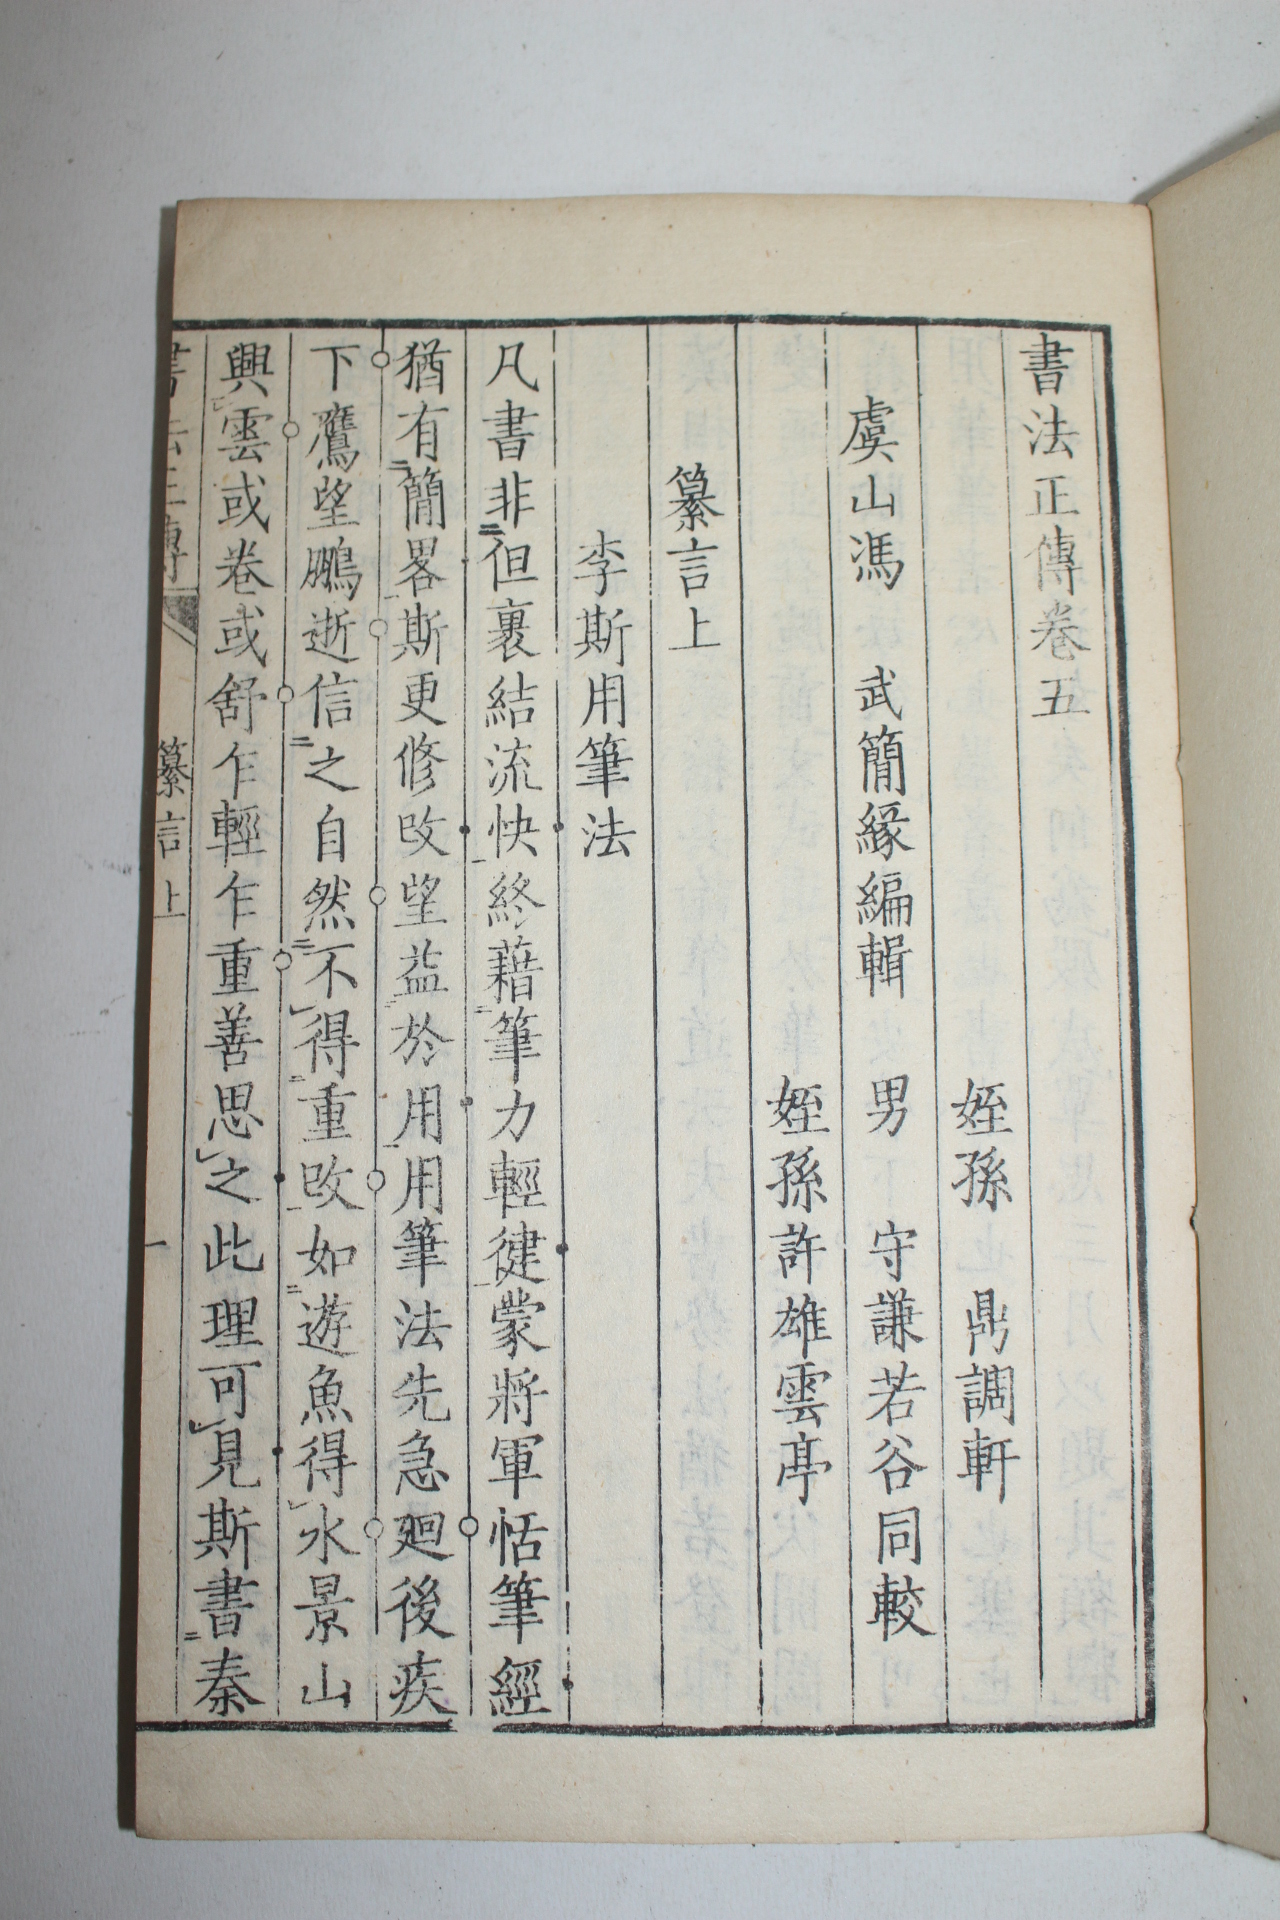 書法正傳卷五
姪孫 鼎調軒
虞山馮 武簡緣編輯 男 守謙若谷同較
姪孫許雄雲亭
纂言上
李斯用筆法
凡書非但裹結流快終藉筆力輕徤蒙將軍恬筆經
猶有簡畧斯更修攺望益於用用筆法先急廻後疾
下鷹望鵬逝信之自然不得重攺如遊魚得水景山
興雲或卷或舒乍輕乍重善思之此理可見斯書秦
書法正傳 纂言上 一